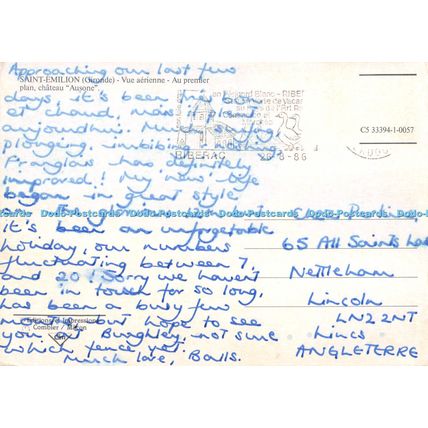 SAINT-ÉMILION (Gironde) - Vue aérienne - Au premier
plan, château "Ausone".
Approaching our last few
days, it's been
et chaud, mais il pleut
aujourdhui. Much
plonging, imbibing
Franglais has definitely
improved! My
began in great style
it's been an unforgetable
holiday, our numbers
fluctuating between 7
and 20! Sorry we haven't
been in touch for so long,
has been a busy few
but hope to see
you at Burghley, not sure
which fence yet.
Much love, Bails.
RIBERAC
C5 33394-1-0057
65 All Saints
Nettleham
Lincoln
LN2 2NT
Lincs
ANGLETERRE
Combier
Dodo-Postcards Dodo-Postcards Dodo-Postcards Dodo-Postcards